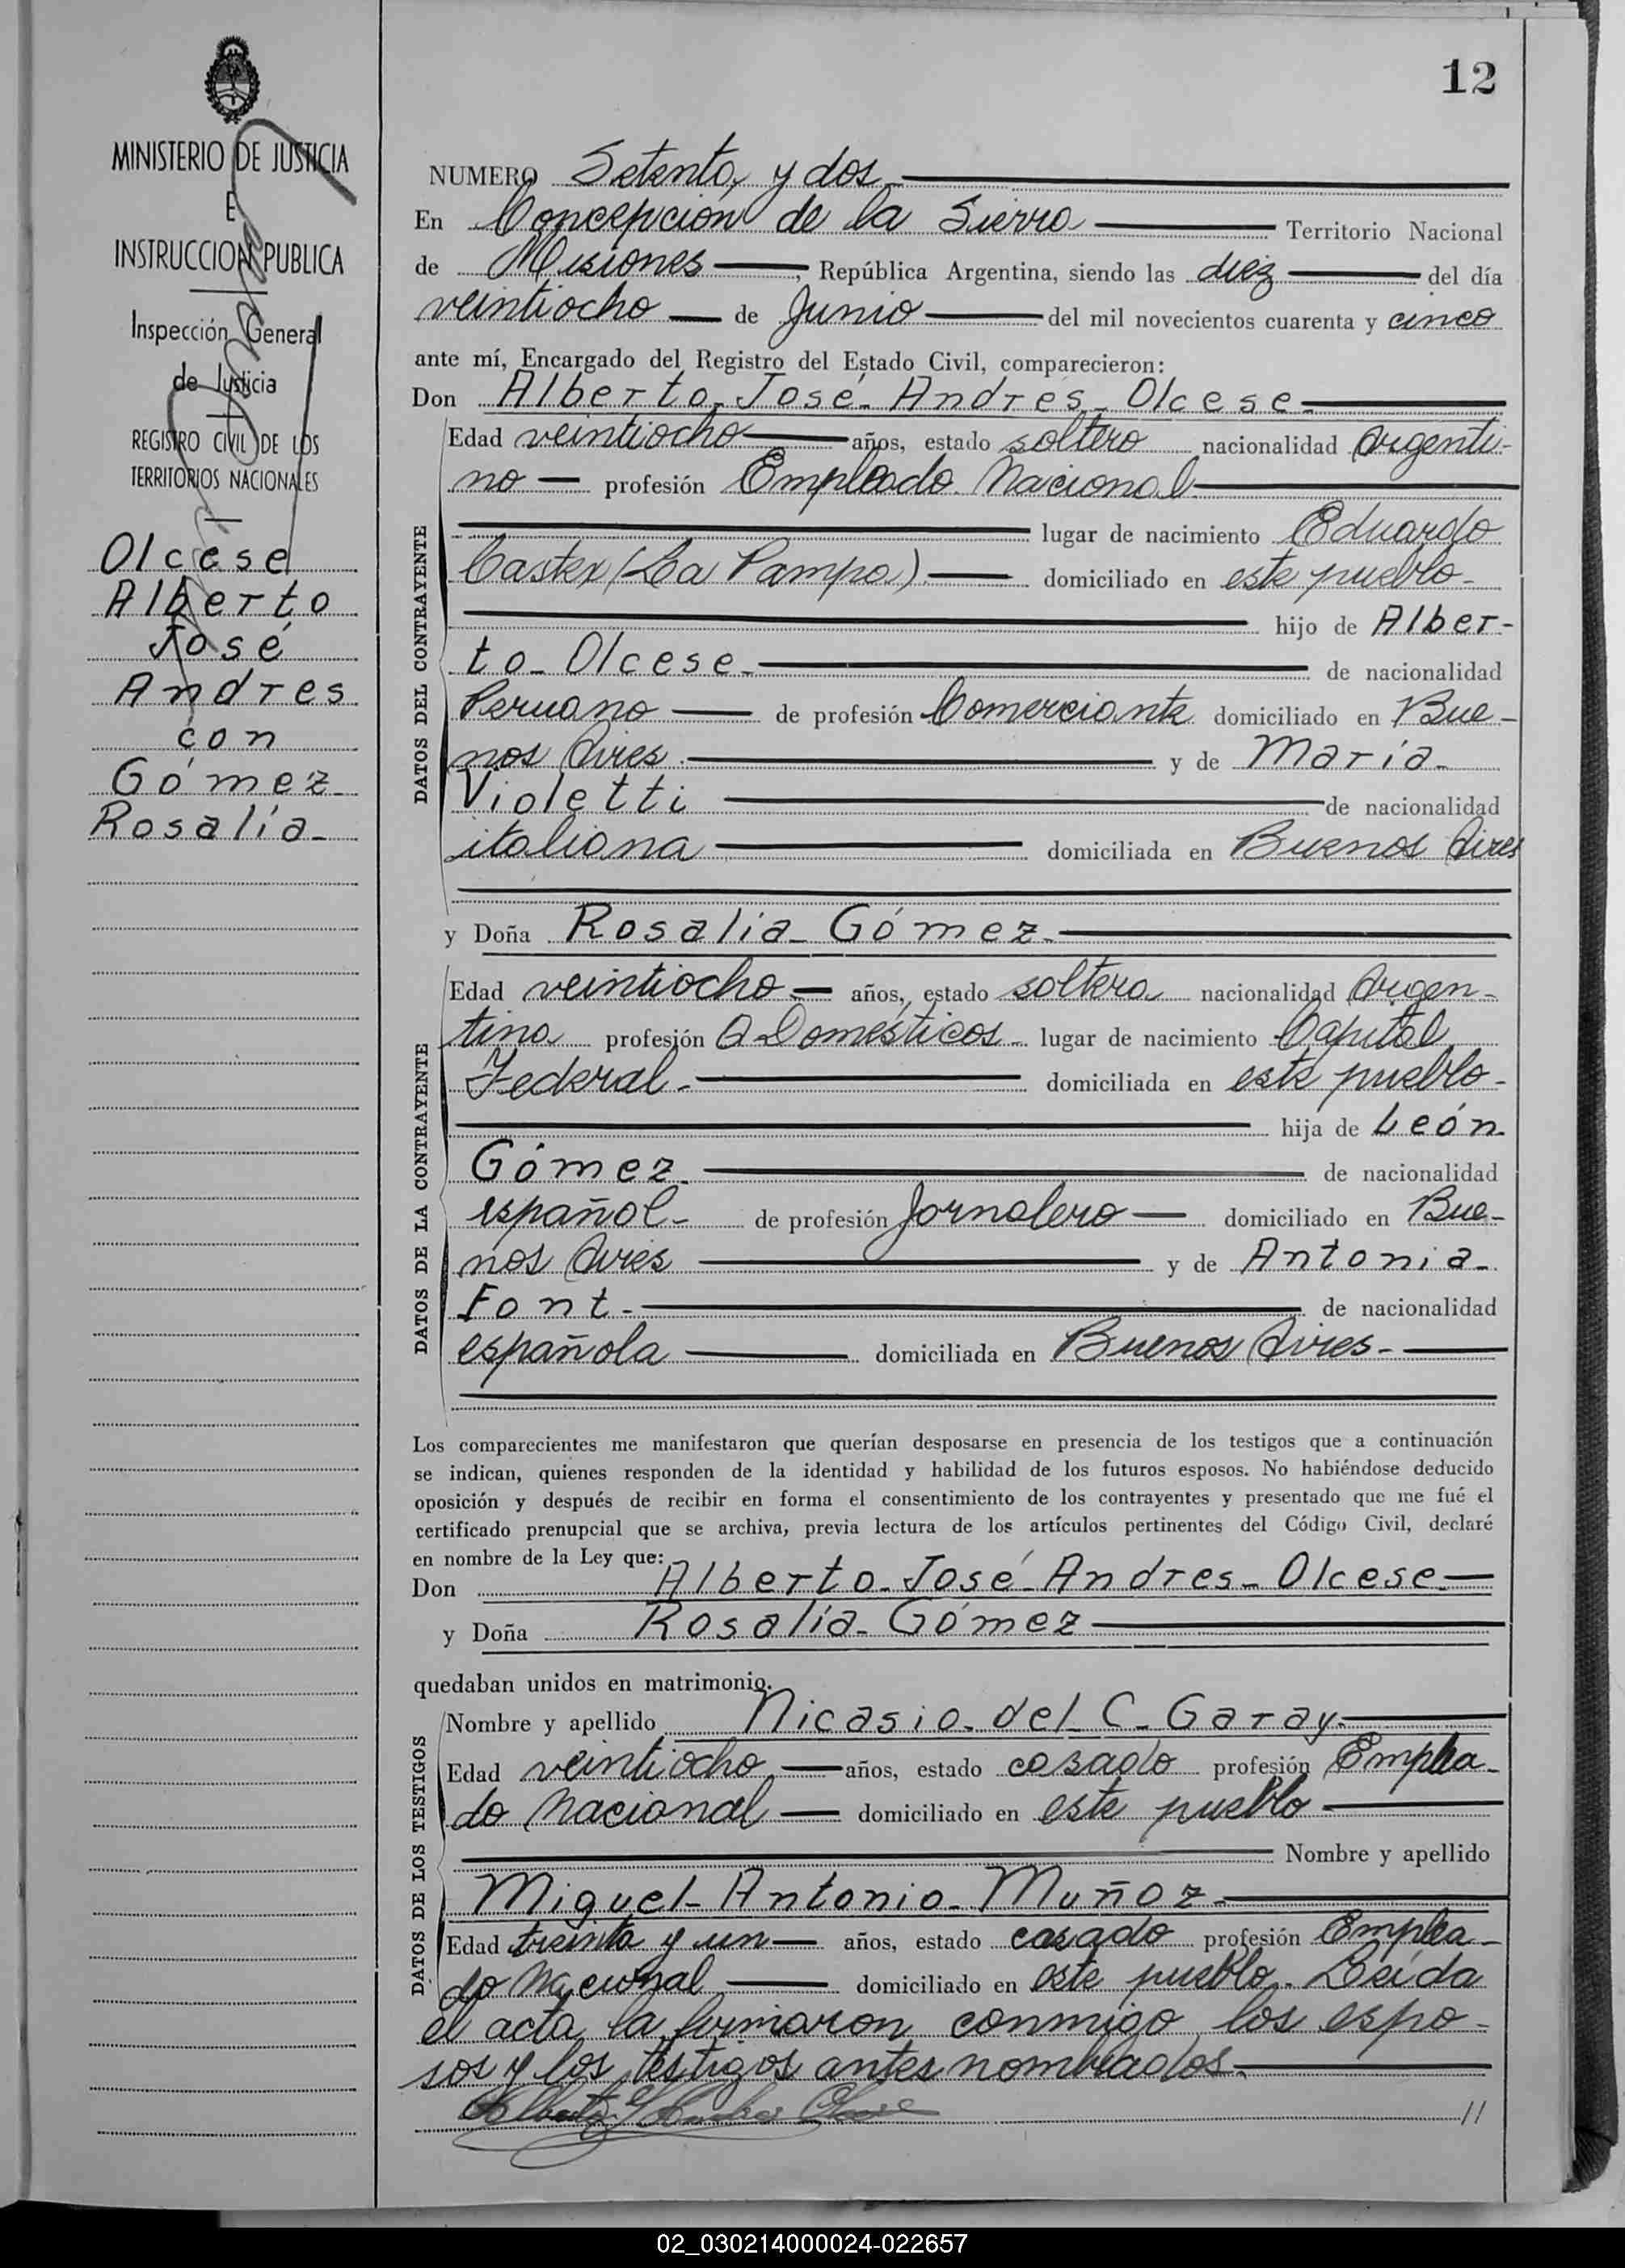 12
MINISTERIO DE JUSTICIA
E
INSTRUCCION PUBLICA
Inspección General
de Justicia
REGISTRO CIVIL DE LOS
TERRITORIOS NACIONALES
Olcese
Alberto
José
Andres
con
Gómez
Rosalía
NUMERO Setenta y dos
En Concepción de la Sierra Territorio Nacional
de Misiones, República Argentina, siendo las diez del día
veintiocho de Junio del mil novecientos cuarenta y cinco
ante mí, Encargado del Registro del Estado Civil, comparecieron:
Don Alberto José Andrés Olcese
DATOS DEL CONTRAYENTE
Edad veintiocho años, estado soltero nacionalidad Argenti-
no profesión Empleado Nacional
lugar de nacimiento Eduardo
Castex (La Pampa) domiciliado en este pueblo
hijo de Alber-
to Olcese de nacionalidad
Peruano de profesión Comerciante domiciliado en Bue-
nos Aires y de María
Violetti de nacionalidad
italiana domiciliada en Buenos Aires
y Doña Rosalía Gómez
DATOS DE LA CONTRAYENTE
Edad veintiocho años, estado soltera nacionalidad Argen-
tina profesión Q. Domésticos lugar de nacimiento Capital
Federal domiciliada en este pueblo
hija de León
Gómez de nacionalidad
español de profesión Jornalero domiciliado en Bue-
nos Aires y de Antonia
Font de nacionalidad
española domiciliada en Buenos Aires
Los comparecientes me manifestaron que querían desposarse en presencia de los testigos que a continuación
se indican, quienes responden de la identidad y habilidad de los futuros esposos. No habiéndose deducido
oposición y después de recibir en forma el consentimiento de los contrayentes y presentado que me fué el
certificado prenupcial que se archiva, previa lectura de los artículos pertinentes del Código Civil, declaré
en nombre de la Ley que:
Don Alberto José Andres Olcese
y Doña Rosalía Gómez
quedaban unidos en matrimonio.
DATOS DE LOS TESTIGOS
Nombre y apellido Nicasio del C. Garay
Edad veintiocho años, estado casado profesión Emplea-
do Nacional domiciliado en este pueblo
Nombre y apellido
Miguel Antonio Muñoz
Edad treinta y un años, estado casado profesión Emplea-
do Nacional domiciliado en este pueblo. Leída
el acta, la firmaron conmigo los espo-
sos y los testigos antes nombrados.
//
02_030214000024-022657